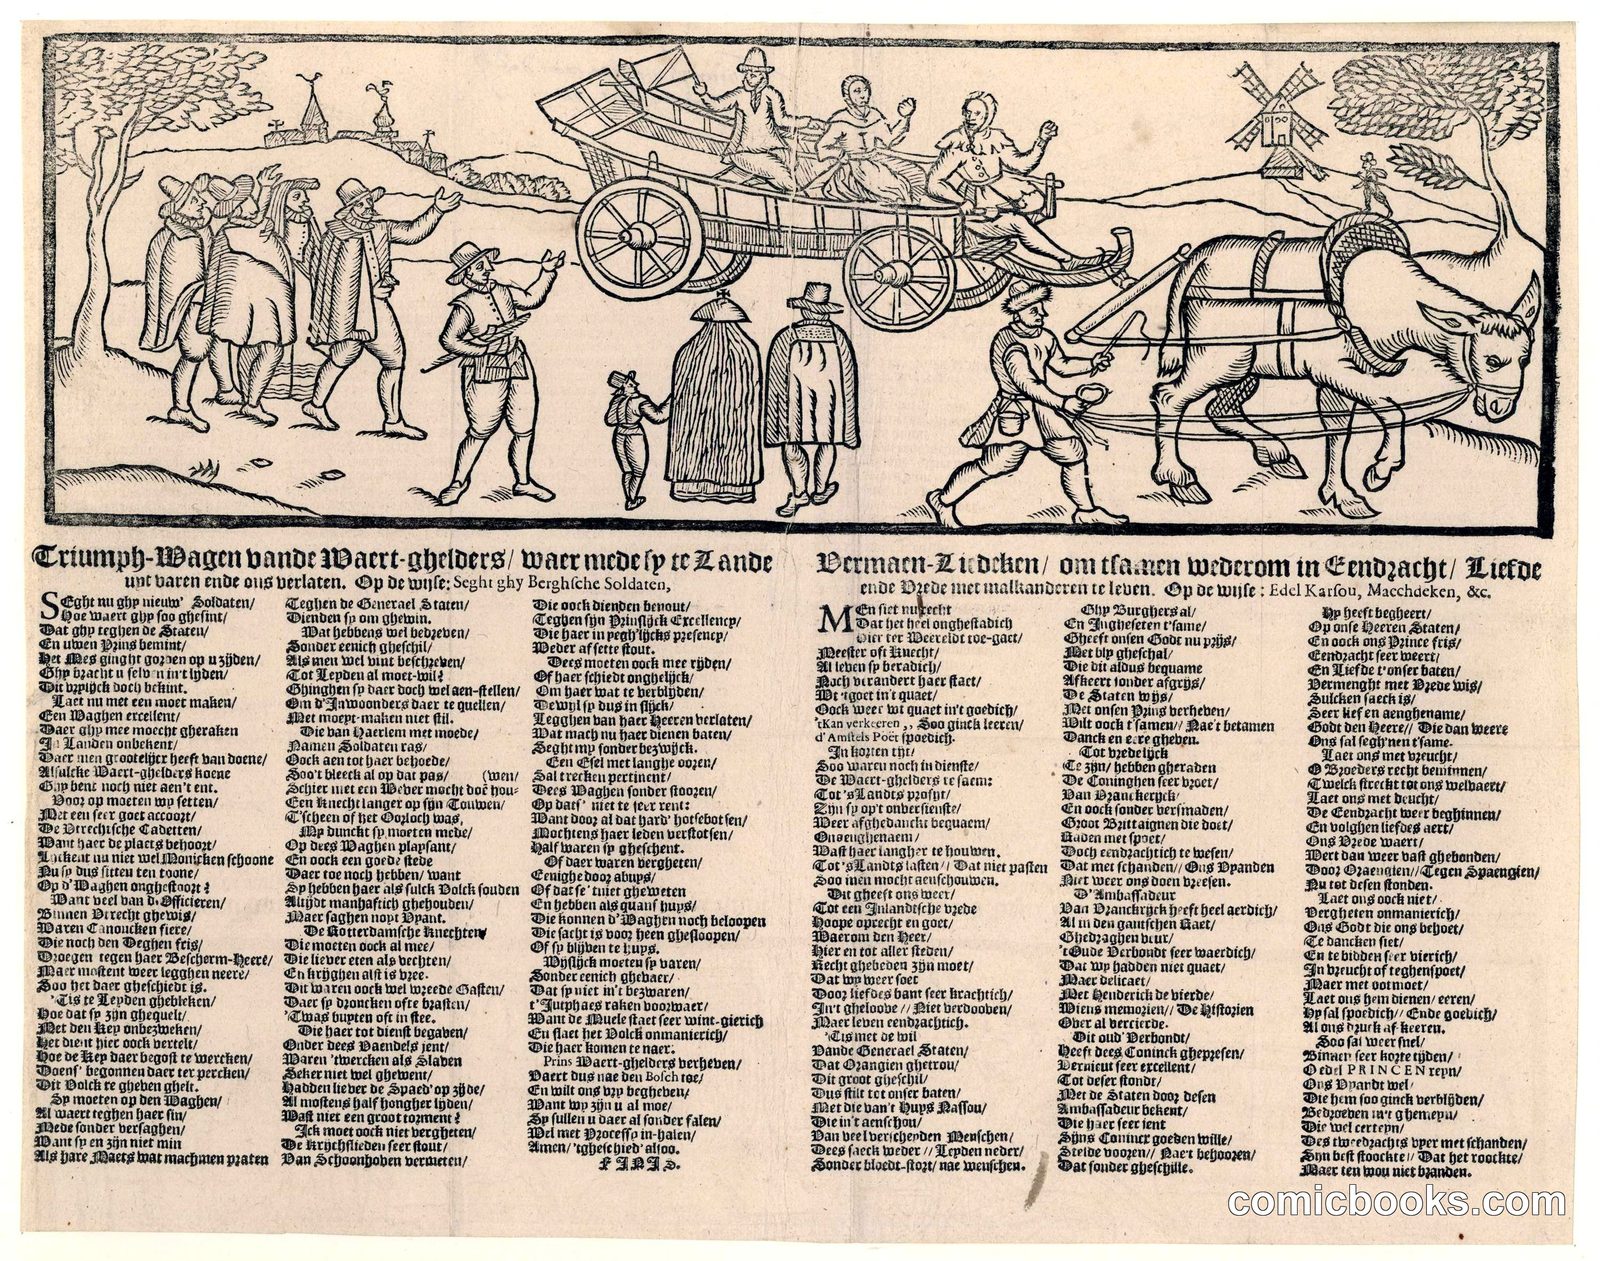 Triumph-Wagen vande Waert-ghelders/ waer mede sy te Lande
uyt varen ende ons verlaten. Op de wijse: Seght ghy Berghsche Soldaten,
SEght nu ghy nieuw' Soldaten/
Hoe waert ghy soo ghesint/
Dat ghy teghen de Staten/
En uwen Prins bemint/
Het Mes ginght gorden op u zijden/
Ghy bracht u selven in't lyden/
Dit vrylyck doch bekint.
Laet nu met een moet maken/
Een Waghen excellent/
Daer ghy mee moecht gheraken
In Landen onbekent/
Daer men grootelijcx heeft van doene/
Alsulcke Waert-ghelders koene
Ghy bent noch niet aen't ent.
Voor op moeten wy setten/
Met een seer goet accoort/
De Vtrechtsche Cadetten/
Want haer de plaets behoort/
nu niet wel Monicken schoone
Nu sy dus sitten ten toone/
Op d'Waghen onghestoort?
Want veel van d'Officieren/
Binnen Vtrecht ghewis/
Waren Canoncken fiere/
Die noch den Deghen fris/
Droegen tegen haer Bescherm-Heere/
Maer mostent weer legghen neere/
Soo het daer gheschiedt is.
'Tis te Leyden ghebleken/
Hoe dat sy zijn ghequelt/
Met den Key onbezweken/
Het dient hier oock vertelt/
Hoe de Key daer begost te wercken/
Doens' begonnen daer ter percken/
Dit Volck te gheven ghelt.
Sy moeten op den Waghen/
Al waert teghen haer sin/
Mede sonder versaghen/
Want sy en zijn niet min
Als hare Maets wat machmen praten
Teghen de Generael Staten/
Dienden sy om ghewin.
Wat hebbens wel bedreven/
Sonder eenich gheschil/
Als men wel vint beschreven/
Tot Leyden al moet-wil?
Ghinghen sy daer doch wel aen-stellen/
Om d'Inwoonders daer te quellen/
Met moeyt-maken niet stil.
Die van Haerlem met moede/
Namen Soldaten ras/
Oock aen tot haer behoede/
Soo't bleeck al op dat pas/ (wen/
Schier niet een Wever mocht doe hou-
Een Knecht langer op sijn Touwen/
T'scheen of het Oorloch was,
My dunckt sy moeten mede/
Op dees Waghen playsant/
En oock een goede stede
Daer toe noch hebben/ want
Sy hebben haer als sulck Volck souden
Altijdt manhaftich ghehouden/
Maer saghen noyt Vyant.
De Rotterdamsche Knechten/
Die moeten oock al mee/
Die liever eten als vechten/
En krijghen alst is vree.
Dit waren oock wel wreede Gasten/
Daer sy droncken ofte brasten/
'Twas buyten oft in stee.
Die haer tot dienst begaven/
Onder dees Vaendels jent/
Waren 'twercken als Slaven
Seker niet wel ghewent/
Hadden liever de Spaed' op zijde/
Al mostens half hongher lijden/
Wast niet een groot torment?
Ick moet oock niet vergheten/
De Krijchslieden seer stout/
Van Schoonhoven vermeten/
Die oock dienden benout/
Teghen sijn Prinslijck Excellency/
Die haer in pegh'lijcks presency/
Weder afsette stout.
Dees moeten oock mee rijden/
Of haer schiedt onghelijck/
Om haer wat te verblijden/
Dewijl sy dus in slijck/
Legghen van haer Heeren verlaten/
Wat mach nu haer dienen baten/
Seght my sonder bezwijck.
Een Esel met langhe ooren/
Sal trecken pertinent/
Dees Waghen sonder stooren/
Op dats' niet te seer rent:
Want door al dat hard' hotsebotsen/
Mochtens haer leden verstotsen/
Half waren sy gheschent.
Of daer waren vergheten/
Eenighe door abuys/
Of dat se 't niet gheweten
En hebben als quansuys/
Die konnen d'Waghen noch beloopen
Die sacht is voor heen ghesloopen/
Of sy blijven te huys.
Wijslijck moeten sy varen/
Sonder eenich ghebaer/
Dat sy niet in't bezwaren/
t'Jutphaes raken voorwaer/
Want de Muele staet seer wint-gierich
En slaet het Volck onmanierich/
Die haer komen te naer.
Prins Waert-ghelders verheven/
Vaert dus nae den Bosch toe/
En wilt ons vry begheven/
Want wy zijn u al moe/
Sy sullen u daer al sonder falen/
Wel met Processy in-halen/
Amen/ 'tgheschied' alsoo.
FINIS.
Vermaen-Liedeken/ om tsamen wederom in Eendracht/ Liefde
ende Vrede met malkanderen te leven. Op de wijse: Edel Karsou, Maechdeken, &c.
MEn siet nu recht
Dat het heel onghestadich
Hier ter Weereldt toe-gaet/
Meester oft Knecht/
Al leven sy beradich/
Noch verandert haer staet/
Wt 'tgoet in't quaet/
Oock weer wt quaet in't goedich/
'tKan verkeeren,, Soo ginck leeren/
d'Amstels Poët spoedich.
In korten tijt/
Soo waren noch in dienste/
De Waert-ghelders te saem:
Tot 'sLandts profijt/
Zijn sy op't onversienste/
Weer afghedanckt bequaem/
Onaenghenaem/
Wast haer langher te houwen.
Tot 'sLandts lasten// Dat niet pasten
Soo men mocht aenschouwen.
Dit gheeft ons weer/
Tot een Inlandtsche vrede
Hoope oprecht en goet/
Waerom den Heer/
Hier en tot aller steden/
Recht ghebeden zijn moet/
Dat wy weer soet
Door liefdes bant seer krachtich/
In't gheloove// Niet verdooven/
Maer leven eendrachtich.
'Tis met de wil
Vande Generael Staten/
Dat Orangien ghetrou/
Dit groot gheschil/
Dus stilt tot onser baten/
Met die van't Huys Nassou/
Die in't aenschou/
Van veel verscheyden Menschen/
Dees saeck weder// Leyden neder/
Sonder bloedt-stort/ nae wenschen.
Ghy Burghers al/
En Inghesetен t'same/
Gheeft onsen Godt nu prijs/
Met bly gheschal/
Die dit aldus bequame
Afkeert sonder afgrijs/
De Staten wijs/
Met onsen Prins verheven/
Wilt oock t'samen// Nae't betamen
Danck en eere gheven.
Tot vredelijck
Te zijn/ hebben gheraden
De Coninghen seer vroet/
Van Vranckerijck/
En oock sonder versmaden/
Groot Brittaignen die doet/
Raden met spoet/
Doch eendrachtich te wesen/
Dat met schanden// Ons Vyanden
Niet weer ons doen vreesen.
D'Ambassadeur
Van Vranckrijck heeft heel aerdich/
Al in den gantschen Raet/
Ghedraghen veur/
t'Oude Verbondt seer waerdich/
Dat wy hadden niet quaet/
Maer delicaet/
Met Henderick de vierde/
Wiens memorien// De Historien
Over al vercierde.
Dit oud' Verbondt/
Heeft dees Coninck ghepresen/
Vernieut seer excellent/
Tot deser stondt/
Met de Staten door desen
Ambassadeur bekent/
Die haer seer jent
Sijns Conincx goeden wille/
Stelde vooren// Nae't behooren/
Dat sonder gheschille.
Hy heeft begheert/
Op onse Heeren Staten/
En oock ons Prince fris/
Eendracht seer weert/
En Liefde t'onser baten/
Vermenght met Vrede wis/
Sulcken saeck is/
Seer lief en aenghename/
Godt den Heere// Die dan weere
Ons sal segh'nen t'same.
Laet ons met vreucht/
O Broeders recht beminnen/
Twelck streckt tot ons welvaert/
Laet ons met deucht/
De Eendracht weer beghinnen/
En volghen liefdes aert/
Ons Vrede waert/
Wert dan weer vast ghebonden/
Door Oraengien// Tegen Spaengien/
Nu tot desen stonden.
Laet ons oock niet/
Vergheten onmanierich/
Ons Godt die ons behoet/
Te dancken siet/
En te bidden seer vierich/
In vreucht of teghenspoet/
Maer met ootmoet/
Laet ons hem dienen/ eeren/
Hy sal spoedich// Ende goedich/
Al ons druck af-keeren.
Soo sal weer snel/
Binnen seer korte tijden/
O edel PRINCEN reyn/
Ons Vyandt wel/
Die hem soo ginck verblijden/
Bedroeven in't ghemeyn/
Die wel certeyn/
Des tweedrachts vyer met schanden/
Sijn best stoockte// Dat het roockte/
Maer ten wou niet branden.
comicbooks.com